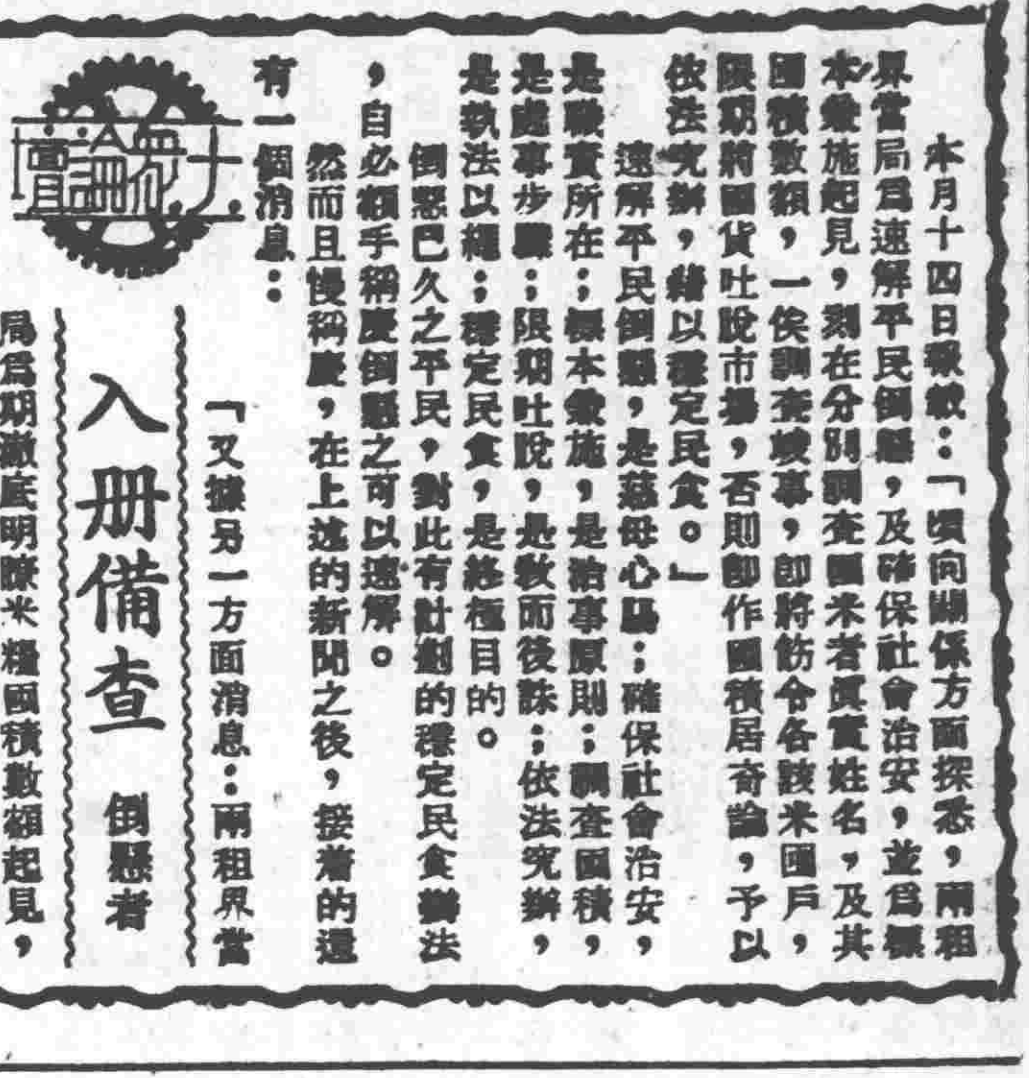 大衆論壇
入册備查
倒懸者
本月十四日報載：「頃向關係方面探悉，兩租
界當局爲速解平民倒懸，及確保社會治安，並爲標
本兼施起見，刻在分別調查囤米者眞實姓名，及其
囤積數額，一俟調查竣事，卽將飭令各該米囤戶，
限期將囤貨吐脫市場，否則卽作囤積居奇論，予以
依法究辦，藉以穩定民食。」
速解平民倒懸，是慈母心腸；確保社會治安，
是職責所在；標本兼施，是治事原則；調查囤積，
是處事步驟；限期吐脫，是敎而後誅；依法究辦，
是執法以繩；穩定民食，是終極目的。
倒懸已久之平民，對此有計劃的穩定民食辦法
，自必額手稱慶倒懸之可以速解。
然而且慢稱慶，在上述的新聞之後，接着的還
有一個消息：
「又據另一方面消息：兩租界當
局爲期澈底明瞭米糧囤積數額起見，